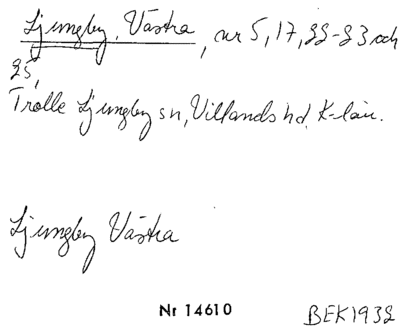 Ljungby, Västra, nr 5, 17, 22-23 och
25,
Trolle Ljungby sn, Villands hd, K-län.
Ljungby Västra
Nr 14610
BEK1932